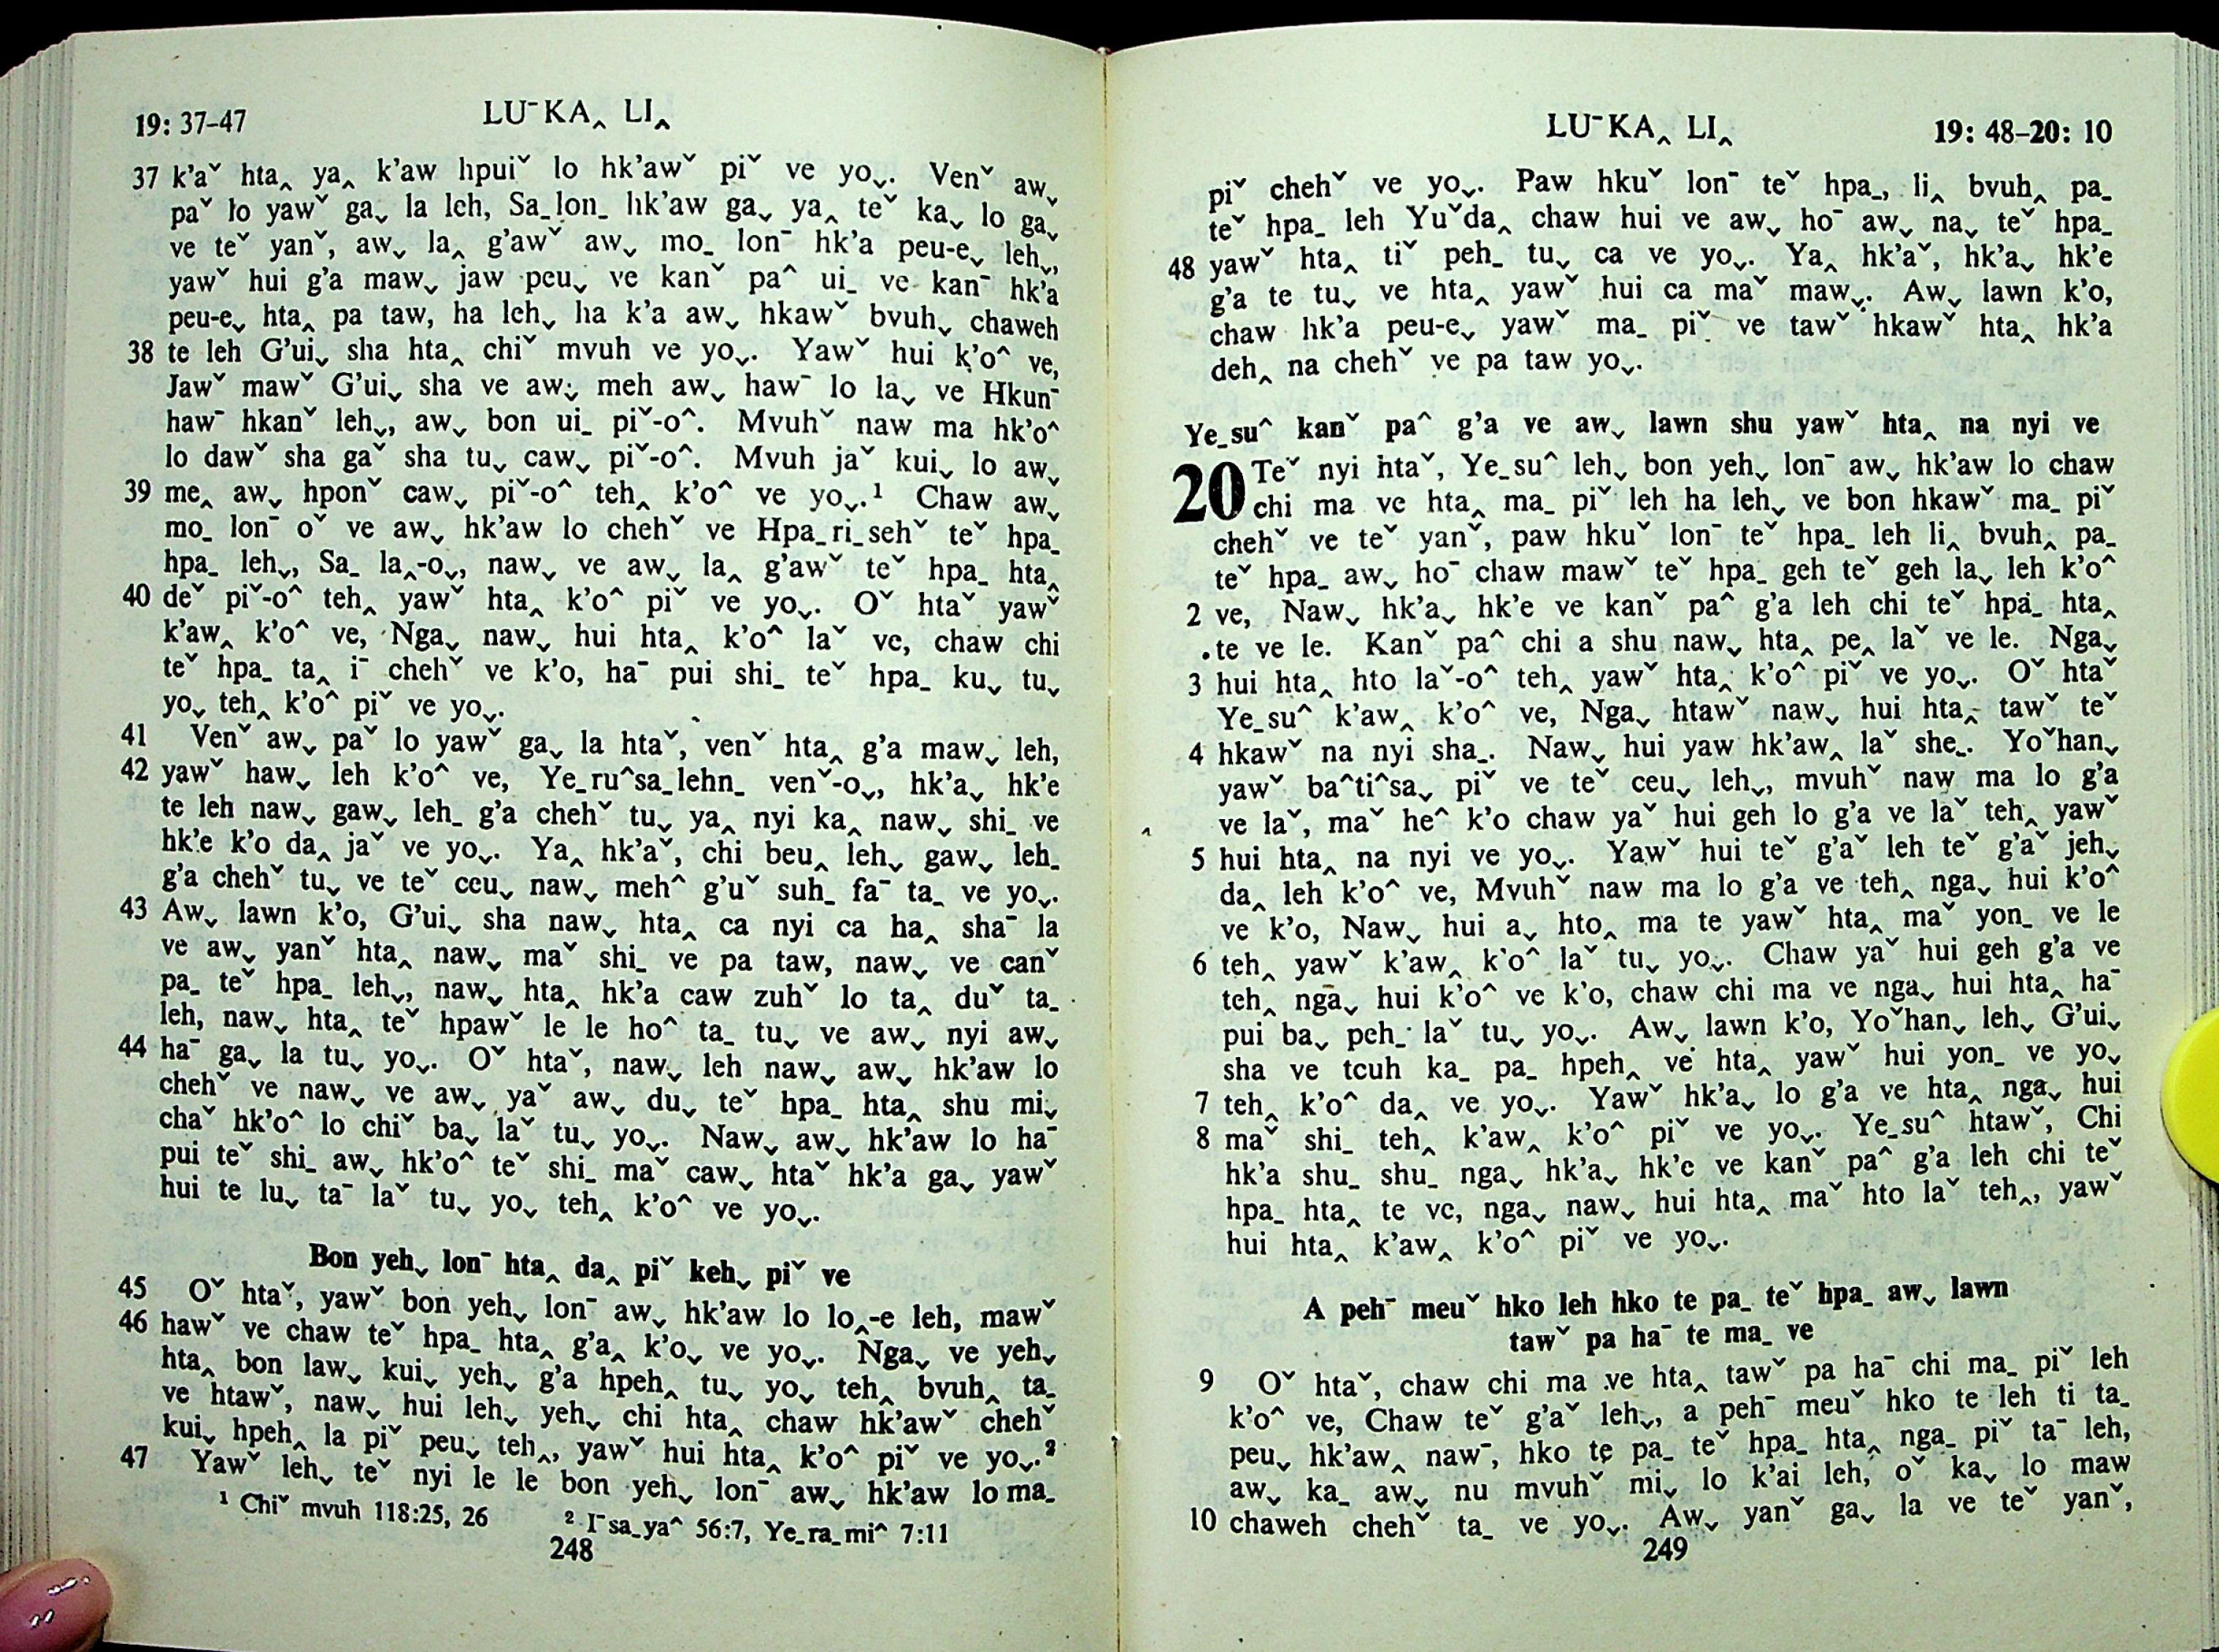 19: 37–47
LUˉKA‸ LI‸
37 k'aˇ hta‸ ya‸ k'aw hpuiˇ lo hk'awˇ piˇ ve yoˬ. Venˇ awˬ
paˇ lo yawˇ gaˬ la leh, Sa_lon_ hk'aw gaˬ ya‸ teˇ kaˬ lo gaˬ
ve teˇ yanˇ, awˬ la‸ g'awˇ awˬ mo_ lonˉ hk'a peu-eˬ lehˬ,
yawˇ hui g'a mawˬ jaw peuˬ ve kanˇ pa^ ui_ ve kanˉ hk'a
peu-eˬ hta‸ pa taw, ha lehˬ ha k'a awˬ hkawˇ bvuhˬ chaweh
38 te leh G'uiˬ sha hta‸ chiˇ mvuh ve yoˬ. Yawˇ hui k'o^ ve,
Jawˇ mawˇ G'uiˬ sha ve awˬ meh awˬ hawˉ lo laˬ ve Hkunˉ
hawˉ hkanˇ lehˬ, awˬ bon ui_ piˇ-o^. Mvuhˇ naw ma hk'o^
lo dawˇ sha gaˇ sha tuˬ cawˬ piˇ-o^. Mvuh jaˇ kuiˬ lo awˬ
39 me‸ awˬ hponˇ cawˬ piˇ-o^ teh‸ k'o^ ve yoˬ.¹ Chaw awˬ
mo_ lonˉ oˇ ve awˬ hk'aw lo chehˇ ve Hpa_ri_sehˇ teˇ hpa_
hpa_ lehˬ, Sa_ la‸-oˬ, nawˬ ve awˬ la‸ g'awˇ teˇ hpa_ hta‸
40 deˇ piˇ-o^ teh‸ yawˇ hta‸ k'o^ piˇ ve yoˬ. Oˇ htaˇ yawˇ
k'aw‸ k'o^ ve, Ngaˬ nawˬ hui hta‸ k'o^ laˇ ve, chaw chi
teˇ hpa_ ta‸ iˉ chehˇ ve k'o, haˉ pui shi_ teˇ hpa_ kuˬ tuˬ
yoˬ teh‸ k'o^ piˇ ve yoˬ.
41 Venˇ awˬ paˇ lo yawˇ gaˬ la htaˇ, venˇ hta‸ g'a mawˬ leh,
42 yawˇ hawˬ leh k'o^ ve, Ye_ru^sa_lehn_ venˇ-oˬ, hk'aˬ hk'e
te leh nawˬ gawˬ leh_ g'a chehˇ tuˬ ya‸ nyi ka‸ nawˬ shi_ ve
hk'e k'o da‸ jaˇ ve yoˬ. Ya‸ hk'aˇ, chi beu‸ lehˬ gawˬ leh_
g'a chehˇ tuˬ ve teˇ ceuˬ nawˬ meh^ g'uˇ suh_ faˉ ta_ ve yoˬ.
43 Awˬ lawn k'o, G'uiˬ sha nawˬ hta‸ ca nyi ca ha‸ shaˉ la
ve awˬ yanˇ hta‸ nawˬ maˇ shi_ ve pa taw, nawˬ ve canˇ
pa_ teˇ hpa_ lehˬ, nawˬ hta‸ hk'a caw zuhˇ lo ta‸ duˇ ta_
leh, nawˬ hta‸ teˇ hpawˇ le le ho^ ta_ tuˬ ve awˬ nyi awˬ
44 haˉ gaˬ la tuˬ yoˬ. Oˇ htaˇ, nawˬ leh nawˬ awˬ hk'aw lo
chehˇ ve nawˬ ve awˬ yaˇ awˬ duˬ teˇ hpa_ hta‸ shu miˬ
chaˇ hk'o^ lo chiˇ baˬ laˇ tuˬ yoˬ. Nawˬ awˬ hk'aw lo haˉ
pui teˇ shi_ awˬ hk'o^ teˇ shi_ maˇ cawˬ htaˇ hk'a gaˬ yawˇ
hui te luˬ taˉ laˇ tuˬ yoˬ teh‸ k'o^ ve yoˬ.
Bon yehˬ lonˉ hta‸ da‸ piˇ kehˬ piˇ ve
45 Oˇ htaˇ, yawˇ bon yehˬ lonˉ awˬ hk'aw lo lo‸-e leh, mawˇ
46 hawˇ ve chaw teˇ hpa_ hta‸ g'a‸ k'oˬ ve yoˬ. Ngaˬ ve yehˬ
hta‸ bon lawˬ kuiˬ yehˬ g'a hpeh‸ tuˬ yoˬ teh‸ bvuh‸ ta_
ve htawˇ, nawˬ hui lehˬ yehˬ chi hta‸ chaw hk'awˇ chehˇ
kuiˬ hpeh‸ la piˇ peuˬ teh‸, yawˇ hui hta‸ k'o^ piˇ ve yoˬ.²
47 Yawˇ lehˬ teˇ nyi le le bon yehˬ lonˉ awˬ hk'aw lo ma_
¹ Chiˇ mvuh 118:25, 26 ² Iˉsa_ya^ 56:7, Ye_ra_mi^ 7:11
248
LUˉKA‸ LI‸
19: 48–20: 10
piˇ chehˇ ve yoˬ. Paw hkuˇ lonˉ teˇ hpa_, li‸ bvuh‸ pa_
teˇ hpa_ leh Yuˇda‸ chaw hui ve awˬ hoˉ awˬ naˬ teˇ hpa_
48 yawˇ hta‸ tiˇ peh_ tuˬ ca ve yoˬ. Ya‸ hk'aˇ, hk'aˬ hk'e
g'a te tuˬ ve hta‸ yawˇ hui ca maˇ mawˬ. Awˬ lawn k'o,
chaw hk'a peu-eˬ yawˇ ma_ piˇ ve tawˇ hkawˇ hta‸ hk'a
deh‸ na chehˇ ve pa taw yoˬ.
Ye_su^ kanˇ pa^ g'a ve awˬ lawn shu yawˇ hta‸ na nyi ve
20 Teˇ nyi htaˇ, Ye_su^ lehˬ bon yehˬ lonˉ awˬ hk'aw lo chaw
chi ma ve hta‸ ma_ piˇ leh ha lehˬ ve bon hkawˇ ma_ piˇ
chehˇ ve teˇ yanˇ, paw hkuˇ lonˉ teˇ hpa_ leh li‸ bvuh‸ pa_
teˇ hpa_ awˬ hoˉ chaw mawˇ teˇ hpa_ geh teˇ geh laˬ leh k'o^
2 ve, Nawˬ hk'aˬ hk'e ve kanˇ pa^ g'a leh chi teˇ hpa_ hta‸
te ve le. Kanˇ pa^ chi a shu nawˬ hta‸ pe‸ laˇ ve le. Ngaˬ
3 hui hta‸ hto laˇ-o^ teh‸ yawˇ hta‸ k'o^ piˇ ve yoˬ. Oˇ htaˇ
Ye_su^ k'aw‸ k'o^ ve, Ngaˬ htawˇ nawˬ hui hta‸ tawˇ teˇ
4 hkawˇ na nyi sha_. Nawˬ hui yaw hk'aw‸ laˇ she_. Yoˇhanˬ
yawˇ ba^ti^saˬ piˇ ve teˇ ceuˬ lehˬ, mvuhˇ naw ma lo g'a
ve laˇ, maˇ he^ k'o chaw yaˇ hui geh lo g'a ve laˇ teh‸ yawˇ
5 hui hta‸ na nyi ve yoˬ. Yawˇ hui teˇ g'aˇ leh teˇ g'aˇ jehˬ
da‸ leh k'o^ ve, Mvuhˇ naw ma lo g'a ve teh‸ ngaˬ hui k'o^
ve k'o, Nawˬ hui aˬ hto‸ ma te yawˇ hta‸ maˇ yon_ ve le
6 teh‸ yawˇ k'aw‸ k'o^ laˇ tuˬ yoˬ. Chaw yaˇ hui geh g'a ve
teh‸ ngaˬ hui k'o^ ve k'o, chaw chi ma ve ngaˬ hui hta‸ haˉ
pui baˬ peh_ laˇ tuˬ yoˬ. Awˬ lawn k'o, Yoˇhanˬ lehˬ G'uiˬ
sha ve tcuh ka_ pa_ hpeh‸ ve hta‸ yawˇ hui yon_ ve yoˬ
7 teh‸ k'o^ da‸ ve yoˬ. Yawˇ hk'aˬ lo g'a ve hta‸ ngaˬ hui
8 maˇ shi_ teh‸ k'aw‸ k'o^ piˇ ve yoˬ. Ye_su^ htawˇ, Chi
hk'a shu_ shu_ ngaˬ hk'aˬ hk'e ve kanˇ pa^ g'a leh chi teˇ
hpa_ hta‸ te ve, ngaˬ nawˬ hui hta‸ maˇ hto laˇ teh‸, yawˇ
hui hta‸ k'aw‸ k'o^ piˇ ve yoˬ.
A pehˉ meuˇ hko leh hko te pa_ teˇ hpa_ awˬ lawn
tawˇ pa haˉ te ma_ ve
9 Oˇ htaˇ, chaw chi ma ve hta‸ tawˇ pa haˉ chi ma_ piˇ leh
k'o^ ve, Chaw teˇ g'aˇ lehˬ, a pehˉ meuˇ hko te leh ti ta_
peuˬ hk'aw‸ nawˉ, hko te pa_ teˇ hpa_ hta‸ nga_ piˇ taˉ leh,
awˬ ka_ awˬ nu mvuhˇ miˬ lo k'ai leh, oˇ kaˬ lo maw
10 chaweh chehˇ ta_ ve yoˬ. Awˬ yanˇ gaˬ la ve teˇ yanˇ,
249